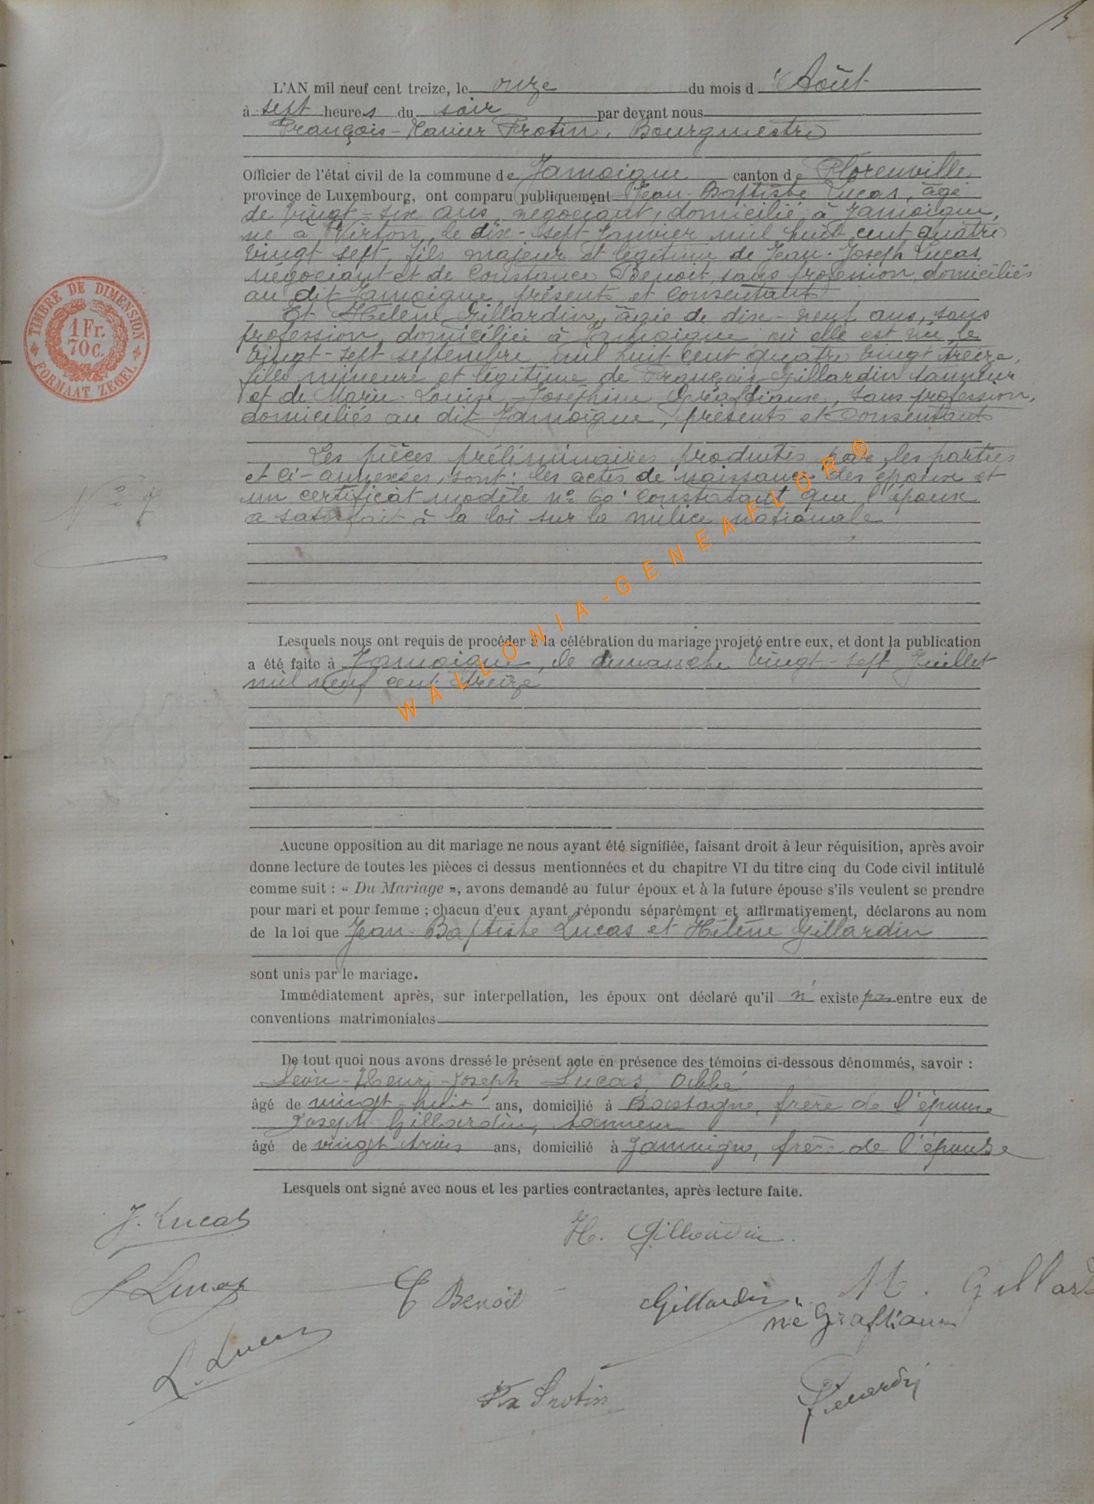 L'AN mil neuf cent treize, le onze du mois d'Août
à sept heures du soir par devant nous
François-Xavier Frotin, Bourgmestre
Officier de l'état civil de la commune de Jamoigne canton de Florenville
province de Luxembourg, ont comparu publiquement Jean-Baptiste Lucas, âgé
de vingt-six ans, négociant, domicilié à Jamoigne,
né à Virton, le dix-sept Janvier mil huit cent quatre
vingt sept, fils majeur et légitime de Jean-Joseph Lucas
négociant et de Constance Benoit, sans profession, domiciliés
au dit Jamoigne, présents et consentant
Et Hélène Gillardin, âgée de dix-neuf ans, sans
profession, domiciliée à Jamoigne où elle est née le
vingt-sept septembre mil huit cent quatre vingt treize,
fille mineure et légitime de François Gillardin tanneur
et de Marie-Louise-Joséphine Graftiaux, sans profession,
domiciliés au dit Jamoigne, présents et consentants
Les pièces préliminaires produites par les parties
et ci-annexées, sont: les actes de naissance des époux et
un certificat modèle n° 60 constatant que l'époux
a satisfait à la loi sur la milice nationale
TIMBRE DE DIMENSION
1 Fr.
70 c.
FORMAAT ZEGEL
Lesquels nous ont requis de procéder à la célébration du mariage projeté entre eux, et dont la publication
a été faite à Jamoigne, le dimanche vingt-sept Juillet
mil neuf cent treize
WALLONIA-GENEAFLOR®
Aucune opposition au dit mariage ne nous ayant été signifiée, faisant droit à leur réquisition, après avoir
donné lecture de toutes les pièces ci dessus mentionnées et du chapitre VI du titre cinq du Code civil intitulé
comme suit : « Du Mariage », avons demandé au futur époux et à la future épouse s'ils veulent se prendre
pour mari et pour femme ; chacun d'eux ayant répondu séparément et affirmativement, déclarons au nom
de la loi que Jean-Baptiste Lucas et Hélène Gillardin
sont unis par le mariage.
Immédiatement après, sur interpellation, les époux ont déclaré qu'il n' existe pas entre eux de
conventions matrimoniales
De tout quoi nous avons dressé le présent acte en présence des témoins ci-dessous dénommés, savoir :
Léon-Henri-Joseph Lucas, Abbé
âgé de vingt-huit ans, domicilié à Bastogne, frère de l'épouse
Joseph Gillardin, tanneur
âgé de vingt trois ans, domicilié à Jamoigne, frère de l'épouse
Lesquels ont signé avec nous et les parties contractantes, après lecture faite.
J. Lucas
H. Gillardin
Lucas
C Benoit
Gillardin
M. Gillard
née Graftiaux
L. Lucas
Fx Frotin